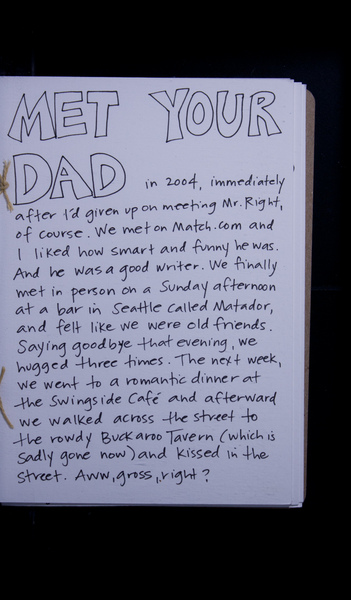 MET YOUR
DAD in 2004, immediately
after I'd given up on meeting Mr. Right,
of course. We met on Match.com and
I liked how smart and funny he was.
And he was a good writer. We finally
met in person on a Sunday afternoon
at a bar in Seattle called Matador,
and felt like we were old friends.
Saying goodbye that evening, we
hugged three times. The next week,
we went to a romantic dinner at
the Swingside Café and afterward
we walked across the street to
the rowdy Buckaroo Tavern (which is
sadly gone now) and kissed in the
street. Aww, gross, right?